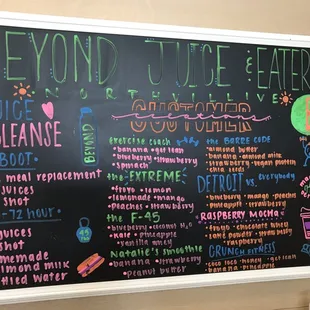 BEYOND JUICE & EATER
NORTHVILLE
JUICE
CLEANSE
BOOT
meal replacement
JUICES
SHOT
-72 hour-
JUICES
SHOT
homemade
almond milk
BEYOND
CUSTOMER
creations
exercise coach
banana
blueberry
strawberry
spinach
the EXTREME
froyo • lemon
lemonade • mango
peaches • strawberry
the F-45
blueberry • coconut H₂O
kale • pineapple
vanilla whey
Natalie's smoothie
banana • strawberry
peanut butter
the BARRE CODE
almond butter
banana • almond milk
strawberry • vegan protein
chia seeds
DETROIT vs. everybody
blueberry • mango • peaches
pineapple • strawberry
RASPBERRY MOCHA
froyo • chocolate whey
raspberry
CRUNCH FITNESS
banana • pineapple